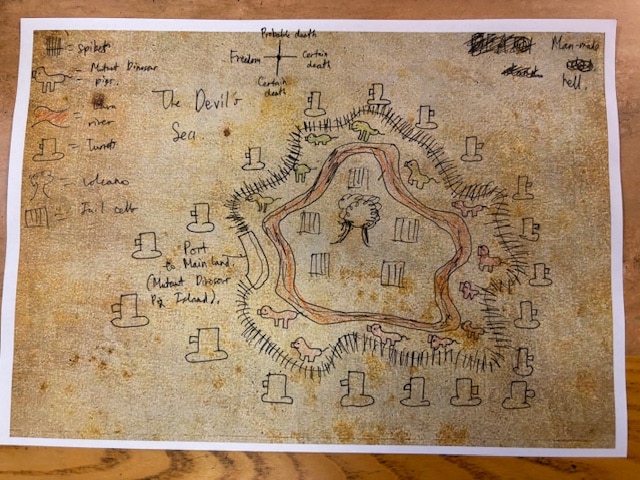 = spikes
= Mutant Dinosaur
pigs.
=
river
= turret
= Volcano
= Jail cells
Probable death
Freedom
Certain
death
Certain
death
Man-made
hell.
The Devil's
Sea
Port
to Main land.
(Mutant Dinosaur
Pig Island).